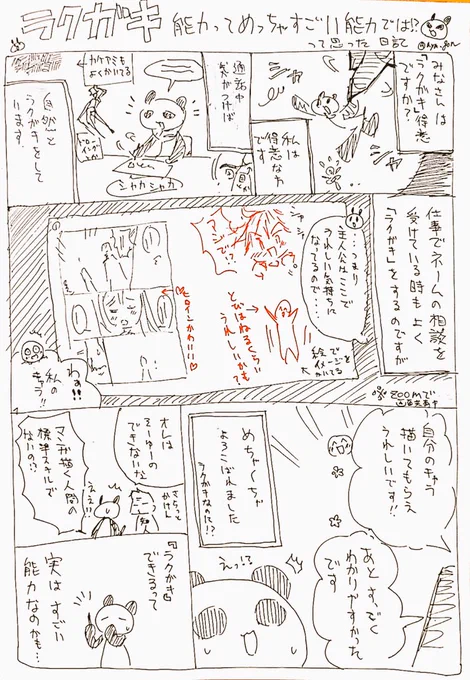 ラクガキ能力ってめっちゃすごい能力では!?
って思った日記
みなさんは
「ラクガキ」得意
ですか?
私は
得意なわ
です
通話中
気がつけば
カケアミも
よくかいてる
シャカシャカ
自然と
ラクガキをして
ります。
仕事でネームの相談を
受けている時もよく
「ラクガキ」をするのですが
※zoomで
…つまり
主人公はここで
うれしい気持ちに
なってるので…
絵でイメージを
かいてる
とびはねるくらい
うれしいかも
ヒロインかわいい♡
わぁ!!
私の
キャラ!!
自分のキャラ
描いてもらえ
うれしいです!!
あとすっごく
わかりやすかった
です
めちゃ〜くちゃ
よろこばれました
ラクガキなのに!?
えっ!?
オレは
そーゆーの
できないな
さらっと
かけん
ええ!!
マンガ描く人間の
標準スキルで
ないの!?
『ラクガキ』
できるって
実はすごい
能力なのかも…